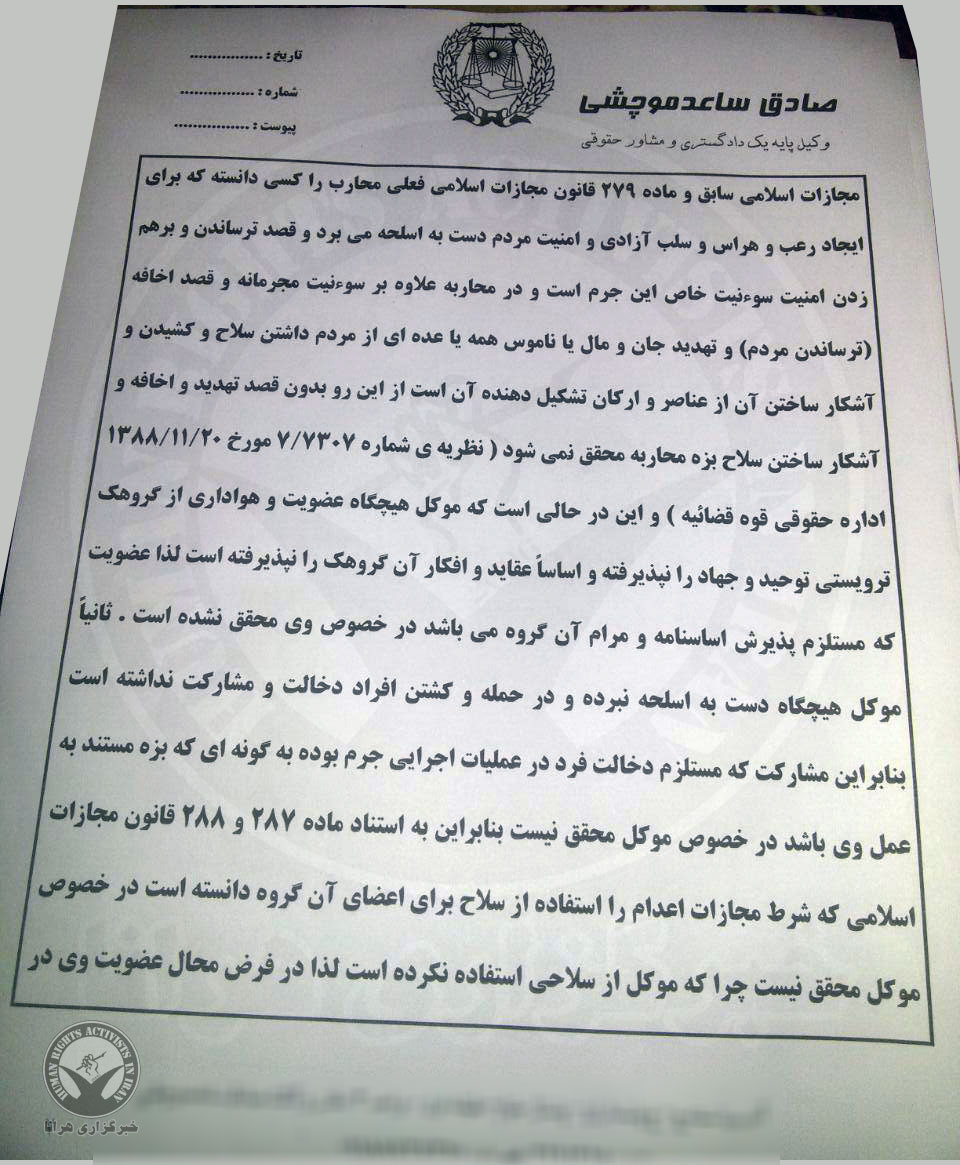 تاریخ : ................
شماره : ................
پیوست : ................
صادق ساعدموچشی
وکیل پایه یک دادگستری و مشاور حقوقی
مجازات اسلامی سابق و ماده ۲۷۹ قانون مجازات اسلامی فعلی محارب را کسی دانسته که برای
ایجاد رعب و هراس و سلب آزادی و امنیت مردم دست به اسلحه می برد و قصد ترساندن و برهم
زدن امنیت سوءنیت خاص این جرم است و در محاربه علاوه بر سوءنیت مجرمانه و قصد اخافه
(ترساندن مردم) و تهدید جان و مال یا ناموس همه یا عده ای از مردم داشتن سلاح و کشیدن و
آشکار ساختن آن از عناصر و ارکان تشکیل دهنده آن است از این رو بدون قصد تهدید و اخافه و
آشکار ساختن سلاح بزه محاربه محقق نمی شود ( نظریه ی شماره ۷/۷۳۰۷ مورخ ۱۳۸۸/۱۱/۲۰
اداره حقوقی قوه قضائیه ) و این در حالی است که موکل هیچگاه عضویت و هواداری از گروهک
ترویستی توحید و جهاد را نپذیرفته و اساساً عقاید و افکار آن گروهک را نپذیرفته است لذا عضویت
که مستلزم پذیرش اساسنامه و مرام آن گروه می باشد در خصوص وی محقق نشده است . ثانیاً
موکل هیچگاه دست به اسلحه نبرده و در حمله و کشتن افراد دخالت و مشارکت نداشته است
بنابراین مشارکت که مستلزم دخالت فرد در عملیات اجرایی جرم بوده به گونه ای که بزه مستند به
عمل وی باشد در خصوص موکل محقق نیست بنابراین به استناد ماده ۲۸۷ و ۲۸۸ قانون مجازات
اسلامی که شرط مجازات اعدام را استفاده از سلاح برای اعضای آن گروه دانسته است در خصوص
موکل محقق نیست چرا که موکل از سلاحی استفاده نکرده است لذا در فرض محال عضویت وی در
HUMAN RIGHTS ACTIVISTS IN IRAN
خبرگزاری هرانا